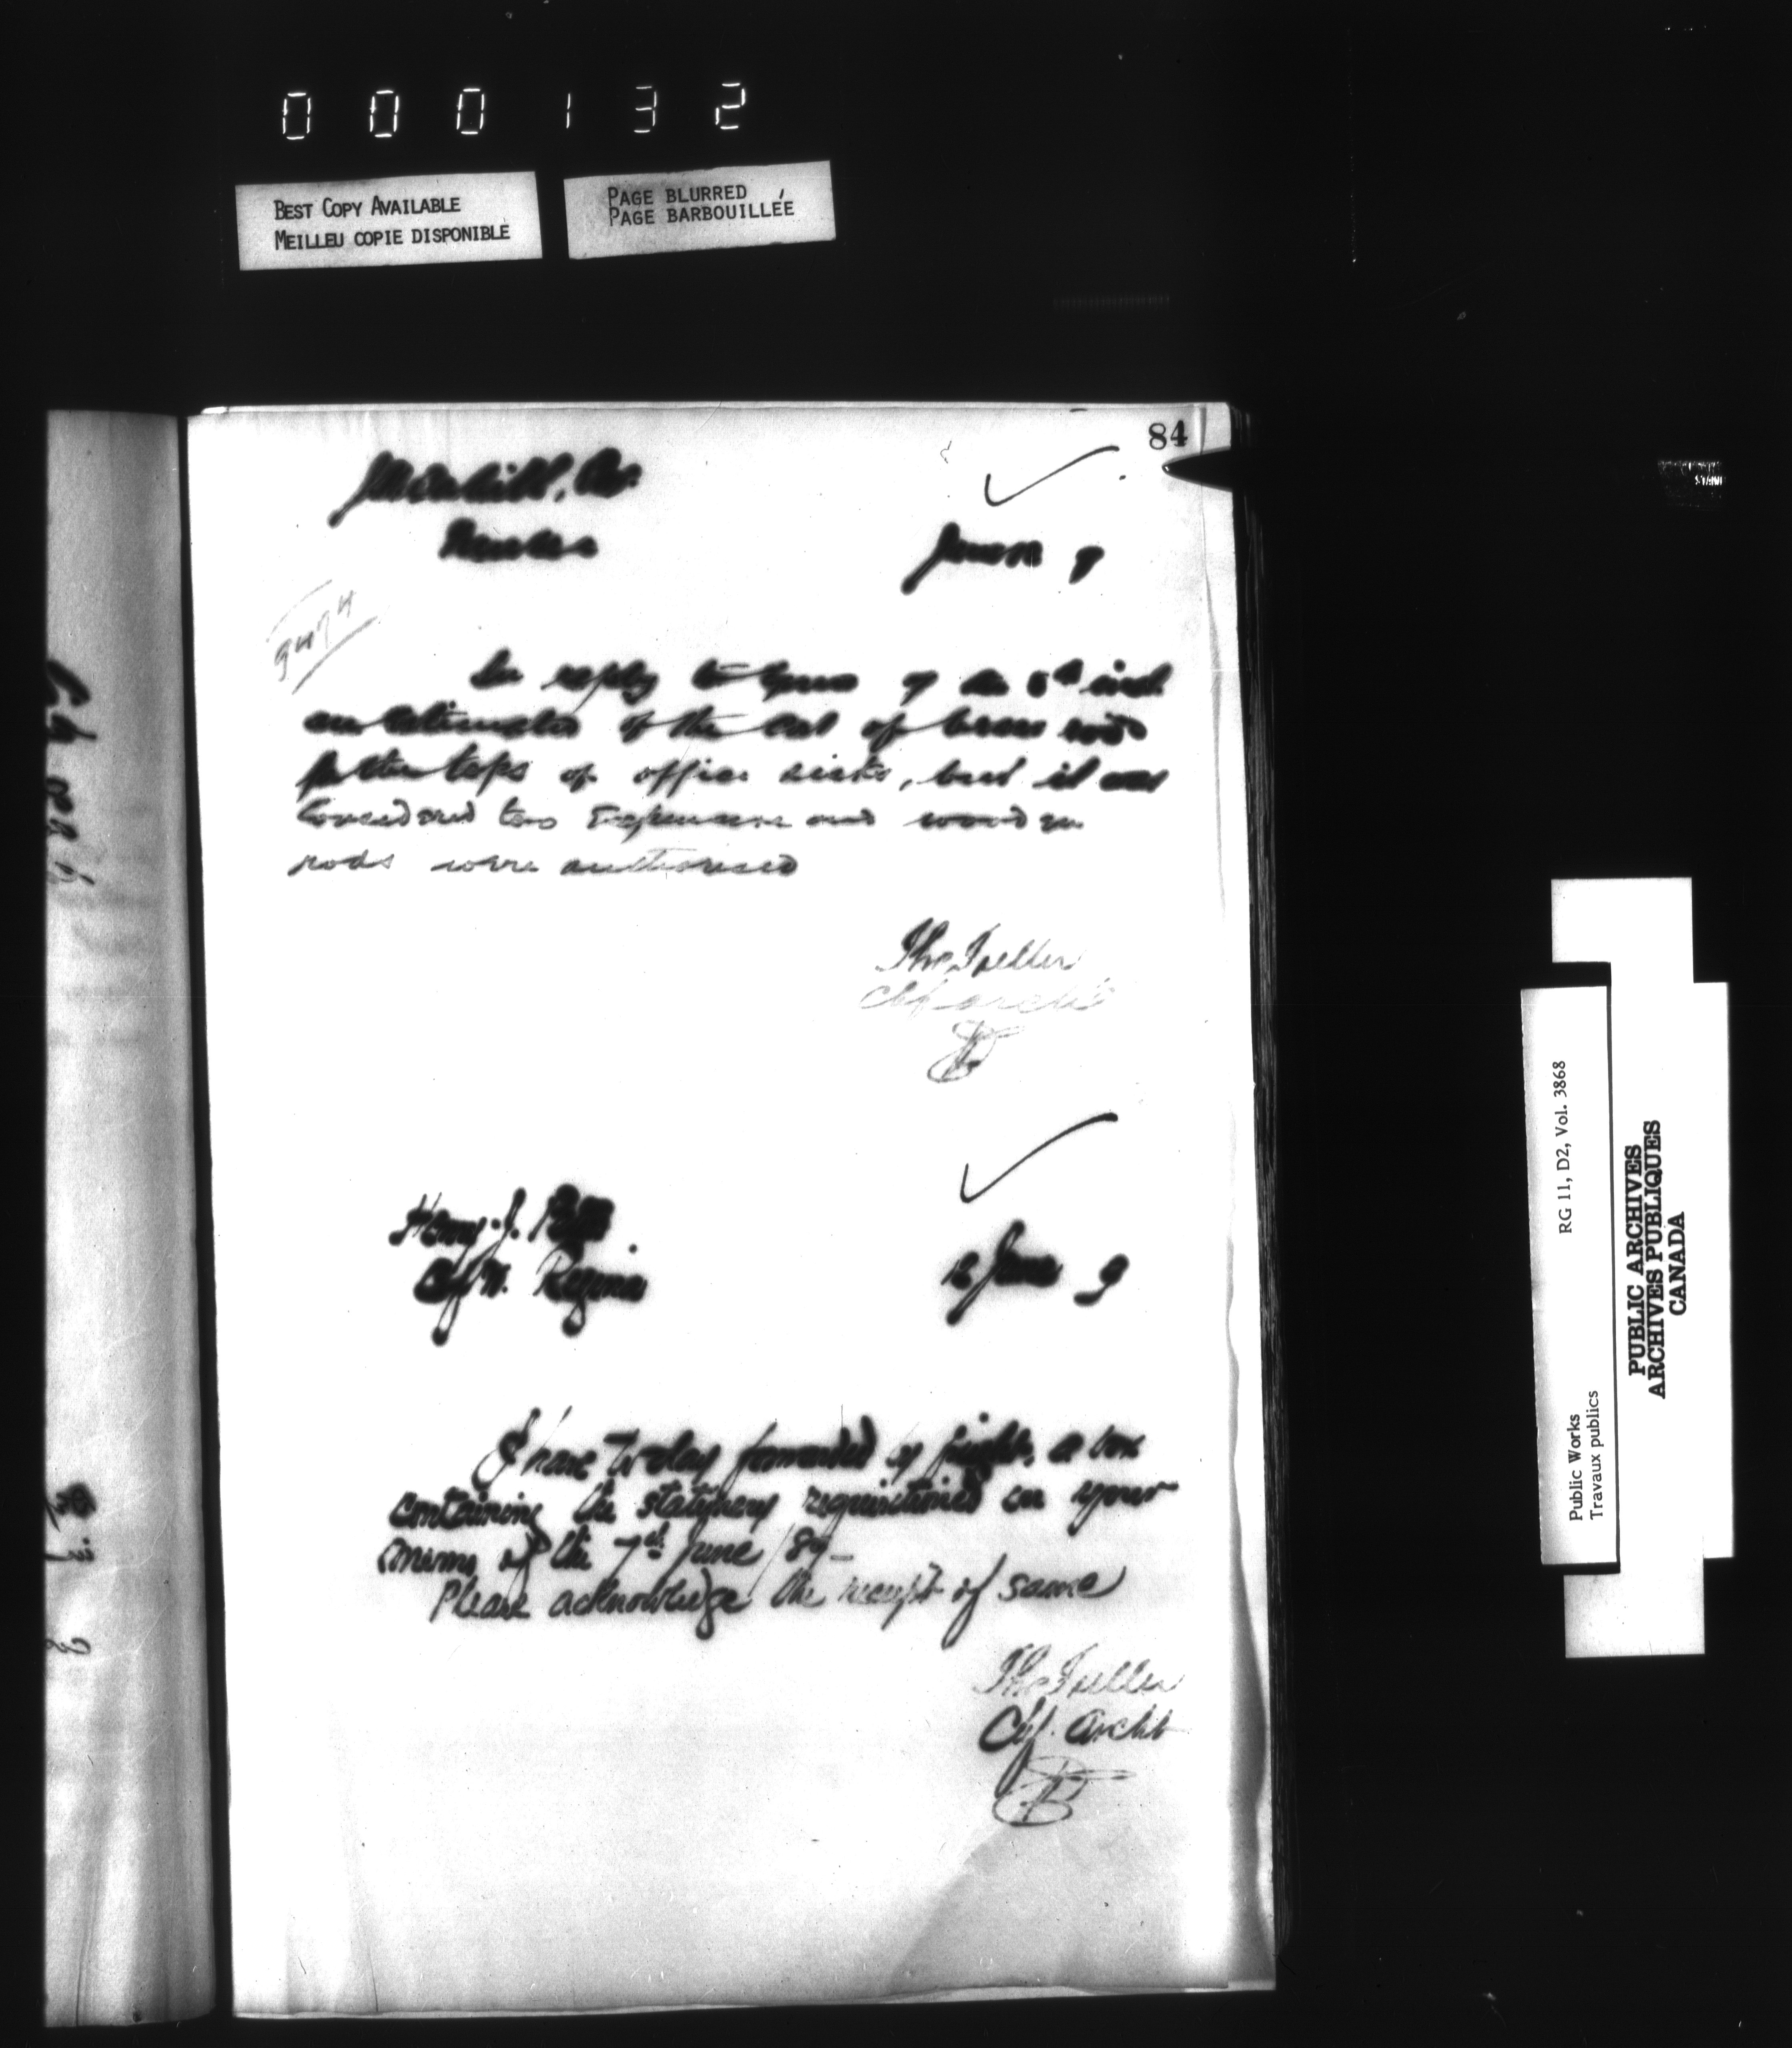 000132
BEST COPY AVAILABLE
MEILLEU COPIE DISPONIBLE
PAGE BLURRED
PAGE BARBOUILLÉE
84
9474
In reply to yours of the inst
of the cost of brass rods
for the tops of office desks, but it was
considered too expensive and wooden
rods were authorised
Tho Fuller
Chf archt
Henry J.
Regina
12 June 9
I have to-day forwarded by freight, a box
containing the stationery requisitioned in your
memo of the 7th June /89 –
Please acknowledge the receipt of same
Tho Fuller
Chf. Archt
RG 11, D2, Vol. 3868
Public Works
Travaux publics
PUBLIC ARCHIVES
ARCHIVES PUBLIQUES
CANADA